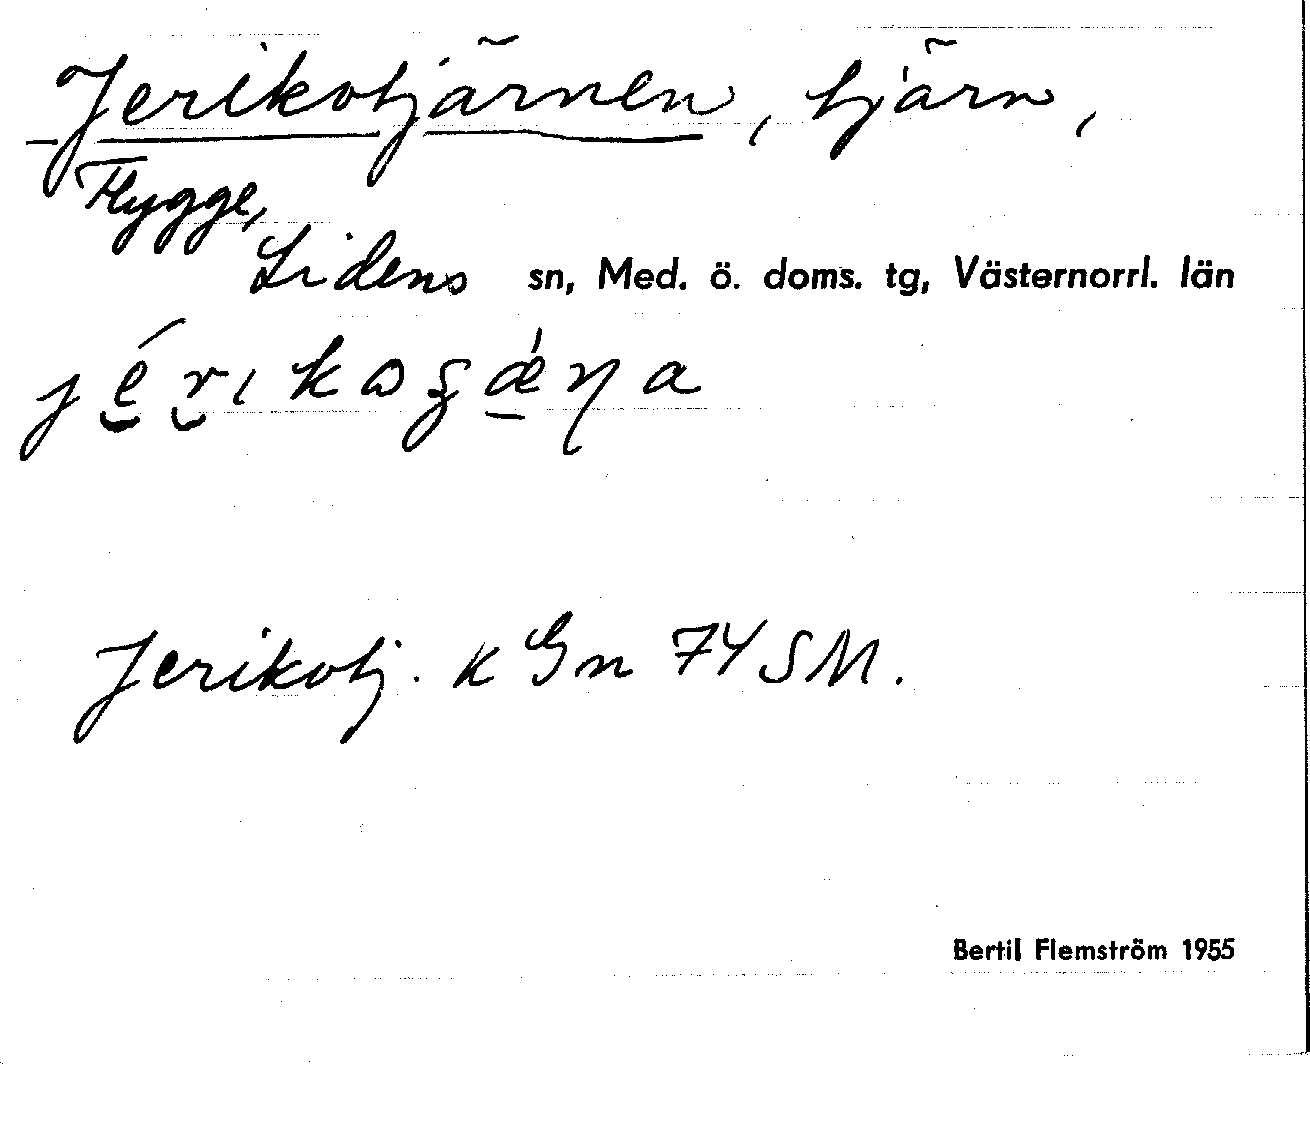 Jerikotjärnen, tjärn,
Flygge,
Lidens sn, Med. ö. doms. tg, Västernorrl. län
Jerikotj. k Gn 74 SM.
Bertil Flemström 1955